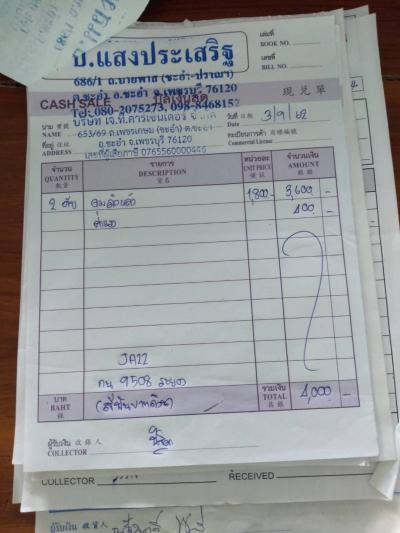 บ.แสงประเสริฐ
686/1 ถ.บายพาส (ชะอำ-ปราณฯ)
ต.ชะอำ อ.ชะอำ จ.เพชรบุรี 76120
Tel: 080-2075273, 098-8468152
เล่มที่
BOOK NO.
เลขที่
BILL NO.
CASH SALE บิลเงินสด 現兌單
นาม 寶號
วันที่ 日期
Date 3/9/62
653/69 ถ.เพชรเกษม (ชะอำ) ต.ชะอำ
ที่อยู่ 住址
ADDRESS
อ.ชะอำ จ.เพชรบุรี 76120
ทะเบียนการค้า 商標編號
Commercial License
เลขที่ผู้เสียภาษี
จำนวน QUANTITY 數量
รายการ DESCRIPTION 貨名
หน่วยละ UNIT PRICE 價訖
จำนวนเงิน AMOUNT 銀額
2 1,800- 3,600 -
400 -
JA22
กน 9508 ระยอง
บาท BAHT 銖
(สี่พันบาทถ้วน)
รวมเงิน TOTAL 共銀
4,000 -
ผู้รับเงิน 收銀人
COLLECTOR
COLLECTOR
RECEIVED
ผู้รับเงิน 收銀人